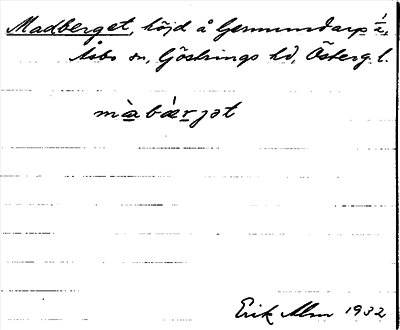 Madberget, höjd å Germundarp 1/2,
Åsbo sn, Göstrings hd, Österg. l.
mὰbæ̀rjət
Erik Alm 1932